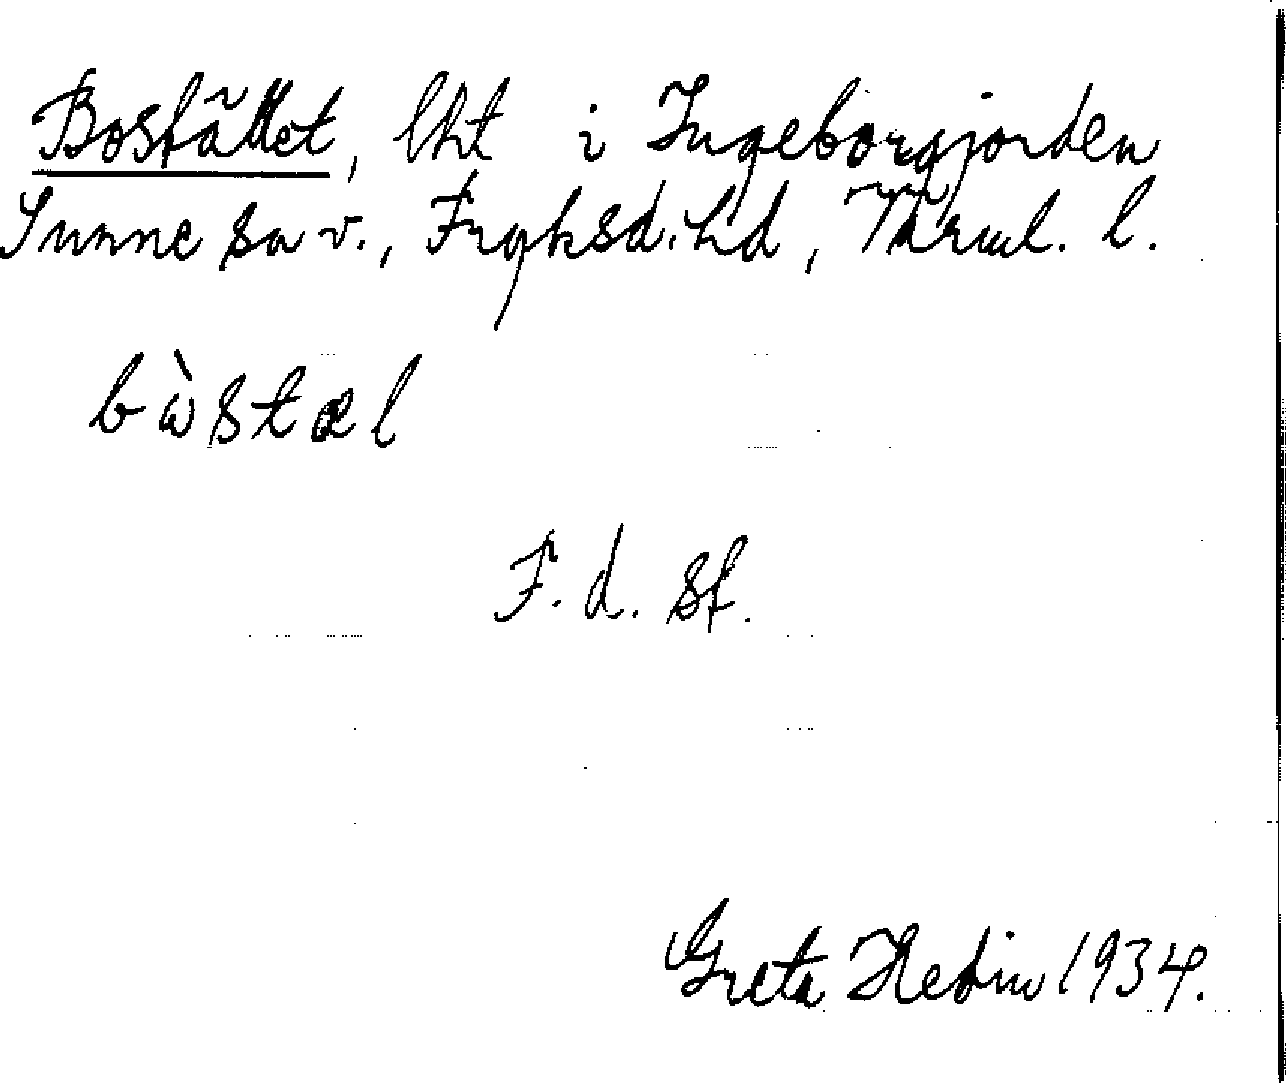 Boställlet, lht i Ingeborgjorden
Sunne sn v., Fryksd. hd, Värml. l.
bὼstæl
F. d. st.
Greta Hedin 1934.